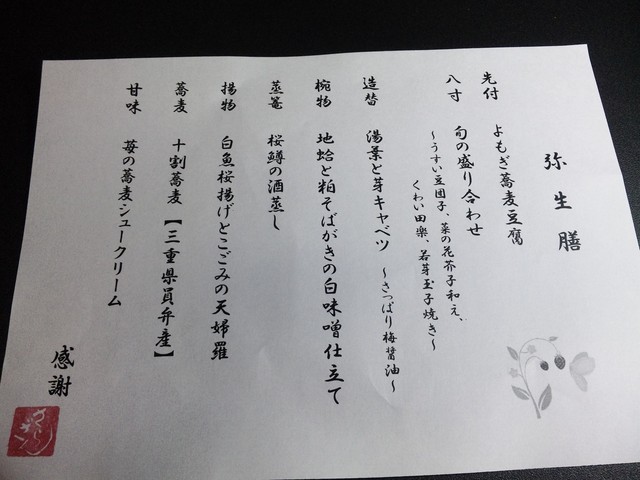 弥生膳
先付 よもぎ蕎麦豆腐
八寸 旬の盛り合わせ
～うすい豆団子、菜の花芥子和え、
くわい田楽、若芽玉子焼き～
造替 湯葉と芽キャベツ ～さっぱり梅醤油～
椀物 地蛤と粕そばがきの白味噌仕立て
蒸篭 桜鱒の酒蒸し
揚物 白魚桜揚げとこごみの天婦羅
蕎麦 十割蕎麦【三重県員弁産】
甘味 苺の蕎麦シュークリーム
感謝